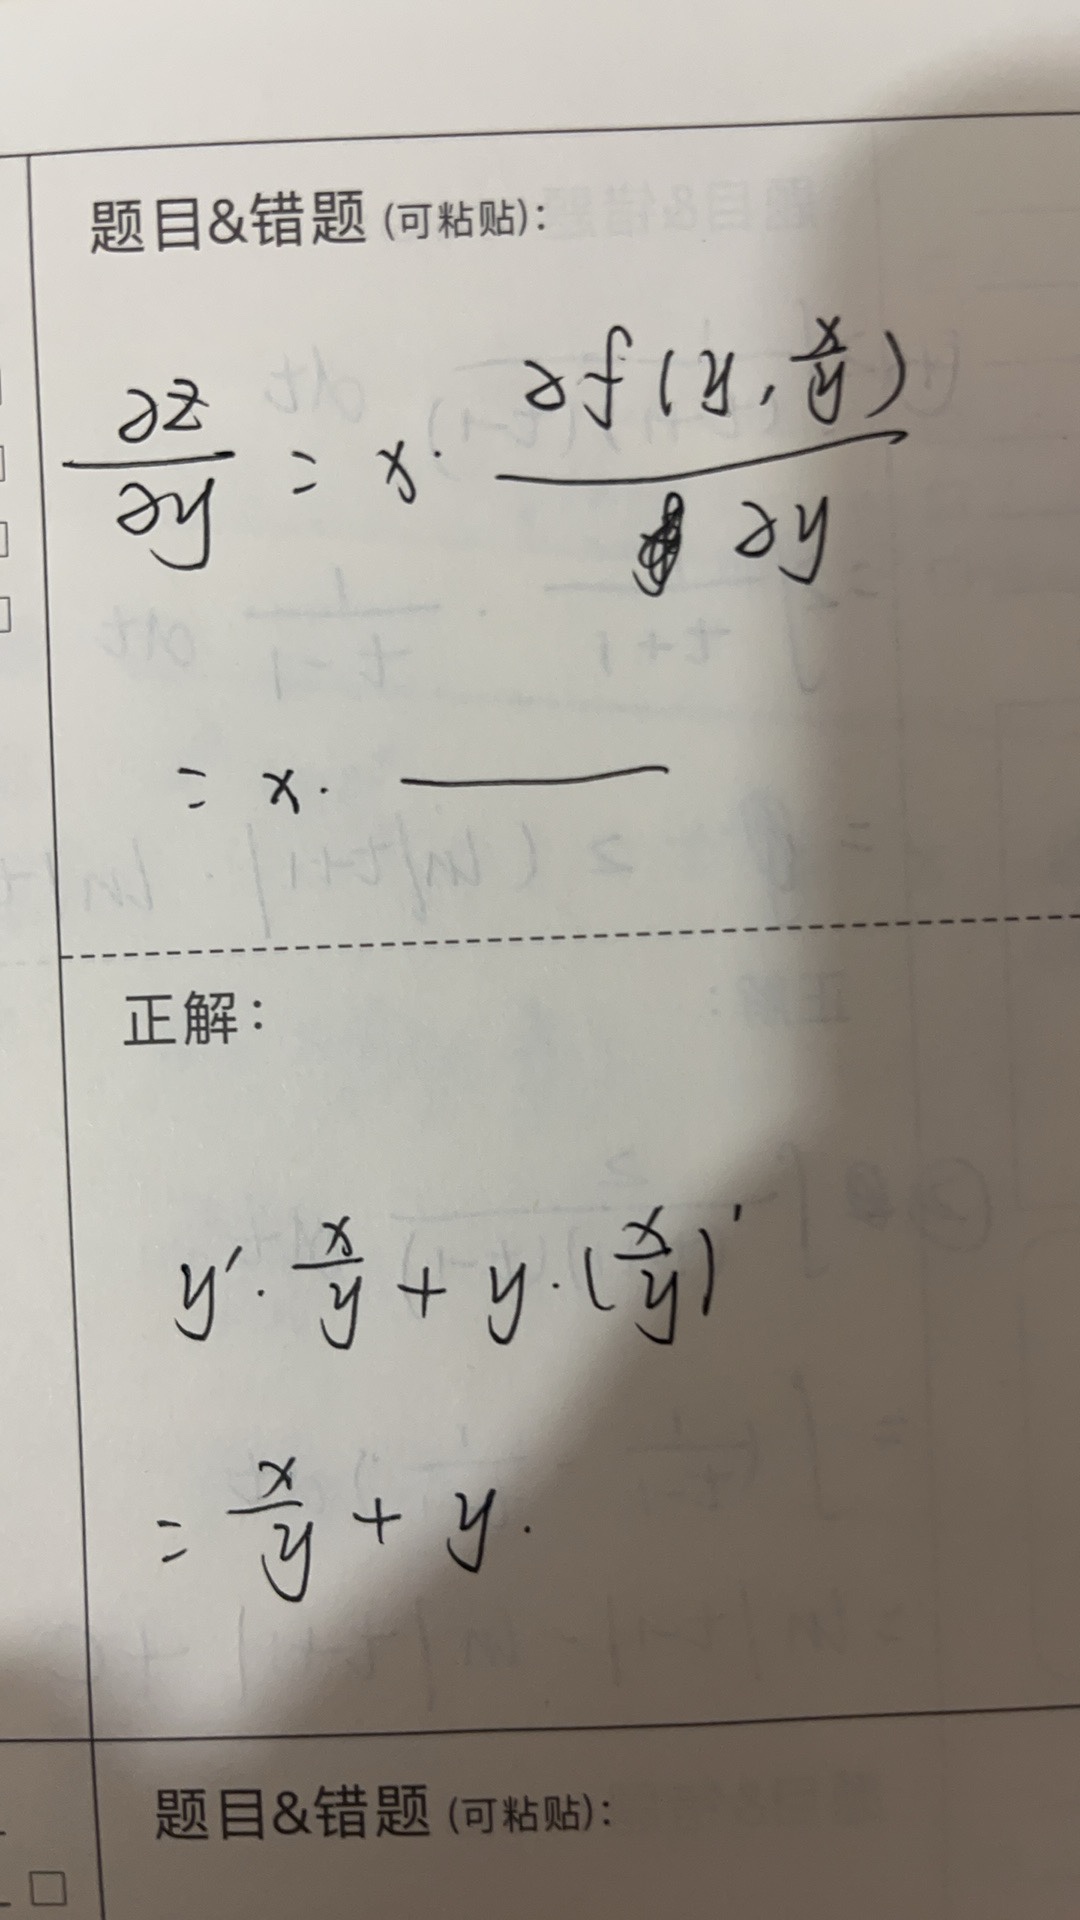 题目&错题 (可粘贴):
∂z/∂y = x · ∂f(y, x/y)/∂y
= x · —
正解:
y′ · x/y + y · (x/y)′
= x/y + y ·
题目&错题 (可粘贴):